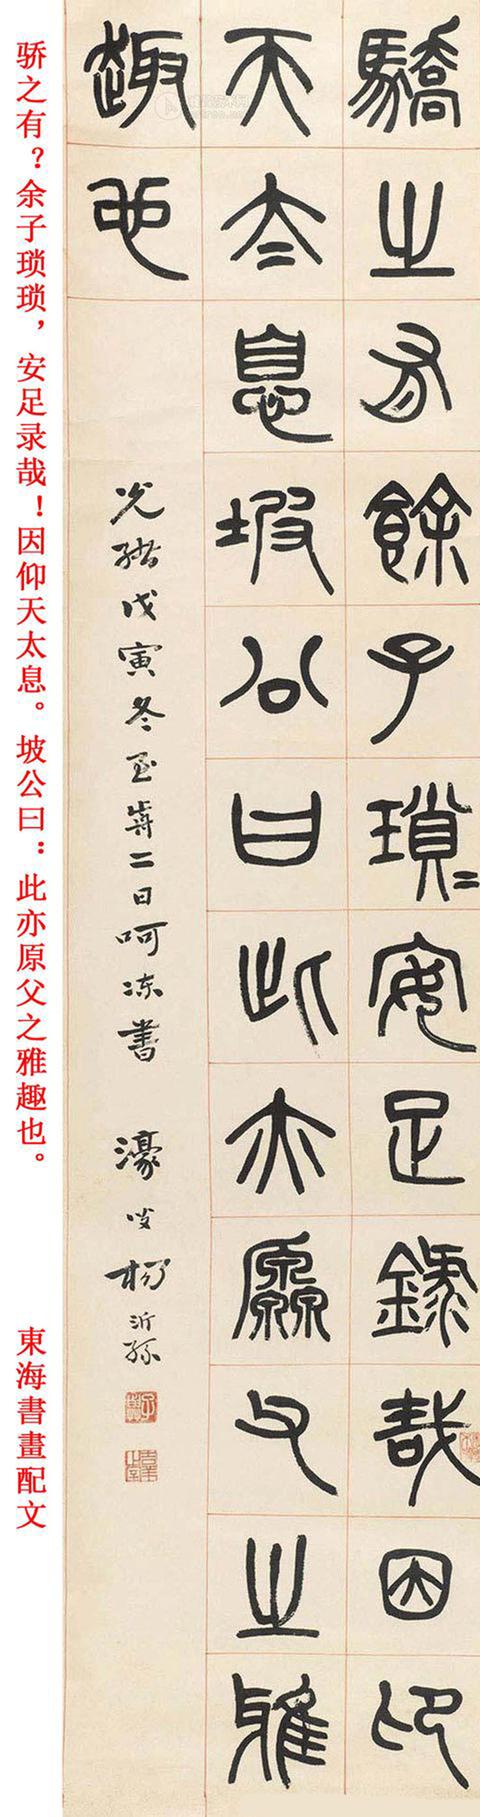 驕之有餘子瑣〻安足錄哉因卬
天太息坡公曰此亦原父之雅
趣也
光緒戊寅冬至前二日呵凍書 濠叟楊沂孫
骄之有？余子琐琐，安足录哉！因仰天太息。坡公曰：此亦原父之雅趣也。
東海書畫配文